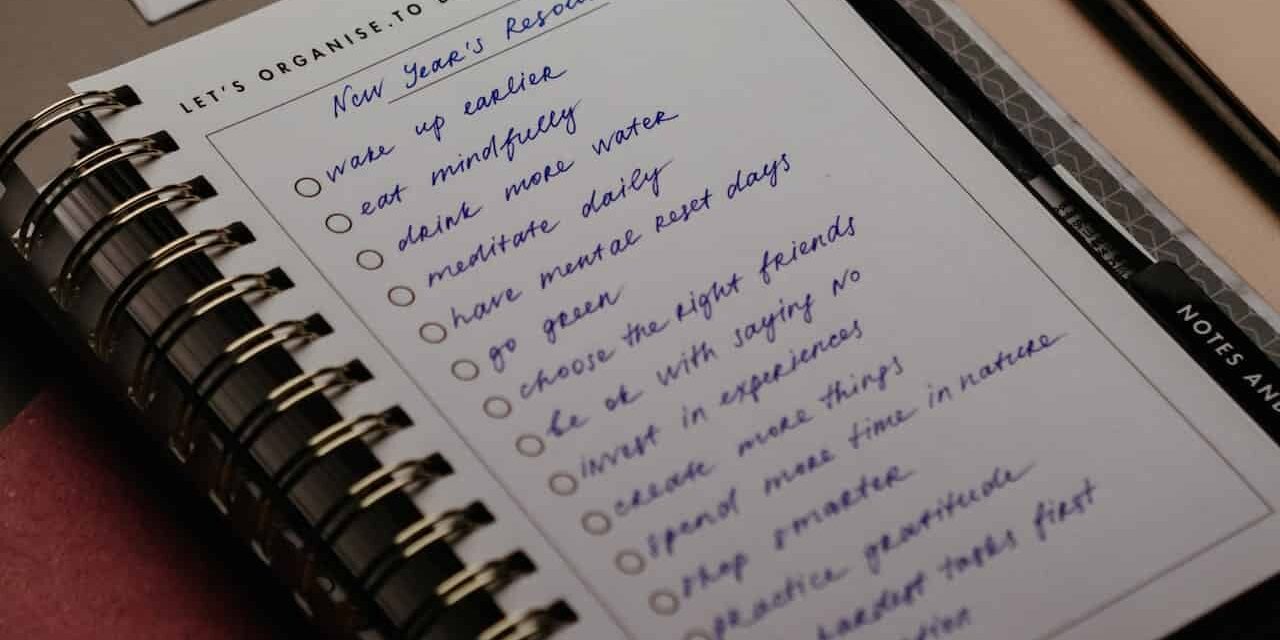 LET'S ORGANISE. TO
New Year's
wake up earlier
eat mindfully
drink more water
meditate daily
have mental reset days
go green
choose the right friends
be ok with saying NO
invest in experiences
create more things
spend more time in nature
shop smarter
practice gratitude
hardest tasks first
NOTES AND